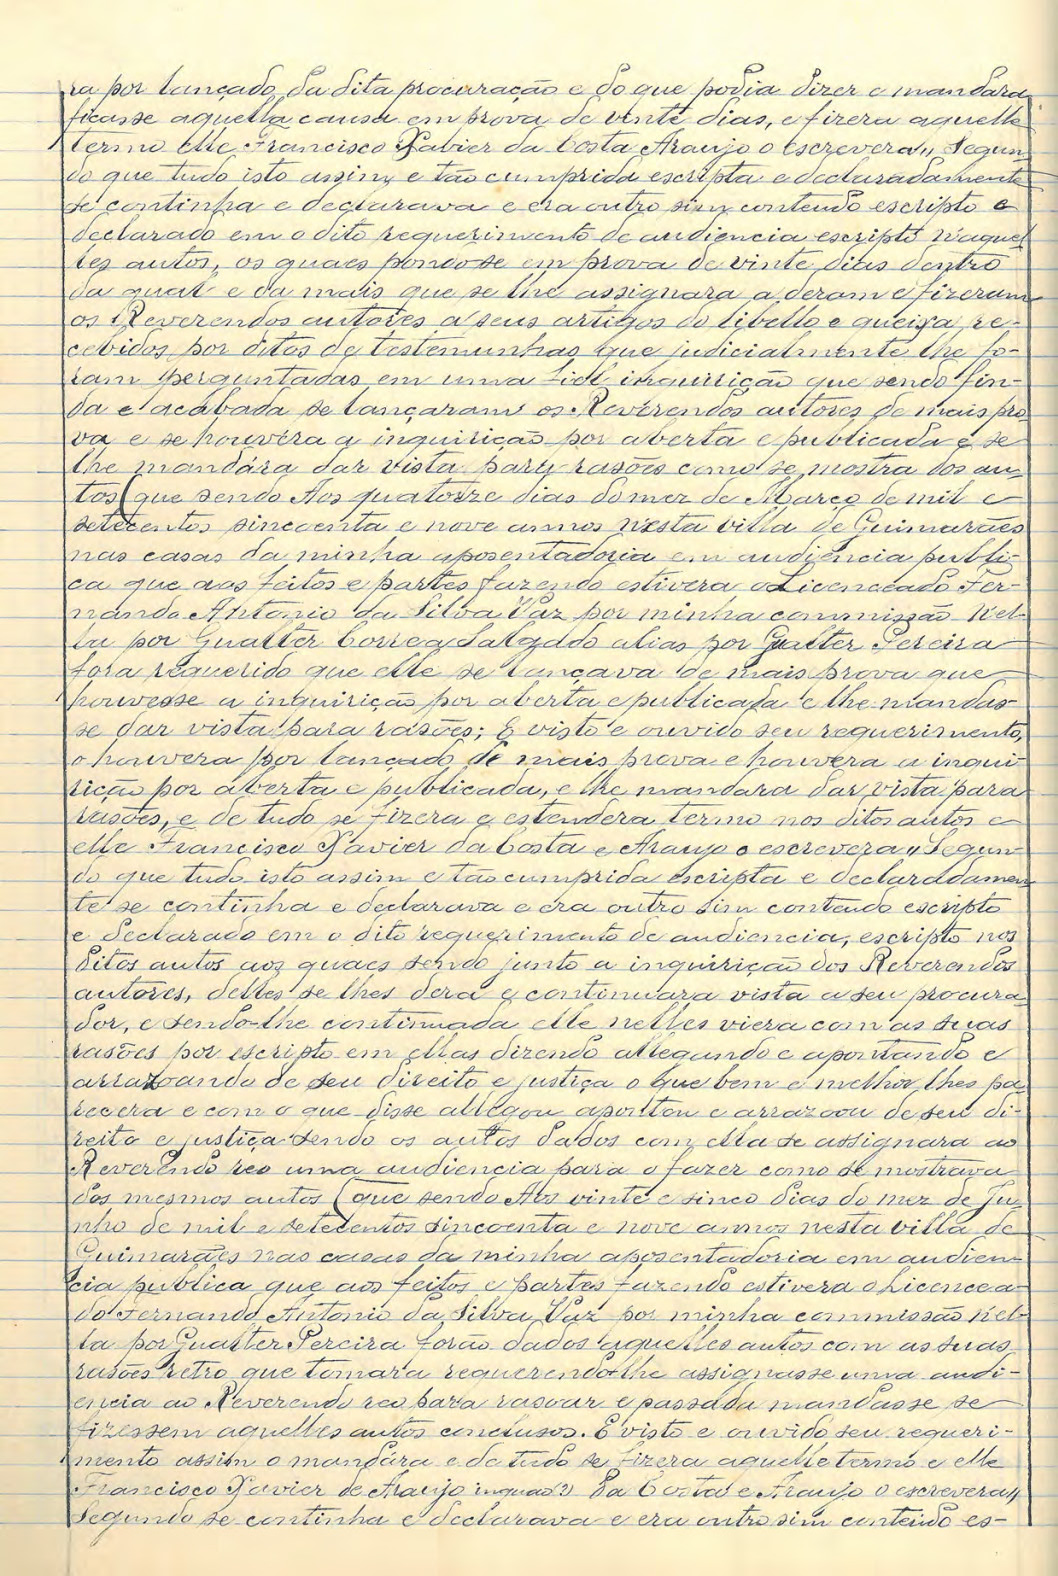 ra por lançado da dita procuração e do que podia dizer e mandara
ficasse aquella causa em prova de vinte dias, e fizera aquelle
termo elle Francisco Xavier da Costa Araujo o escrevera,, Segun-
do que tudo isto assim, e tão cumprida escripta e declaradamente
se continha e declarava e era outro sim contendo escripto e
declarado em o dito requerimento de audiencia escripto n'aquel-
les autos, os quaes pondo-se em prova de vinte dias dentro
da qual e da mais que se lhe assignara a deram e fizeram
os Reverendos autores a seus artigos do libello e queixa re-
cebidos por ditos de testemunhas que judicialmente lhe fo-
ram perguntadas em uma fiel inquirição que sendo fin-
da e acabada se lançaram os Reverendos autores de mais pro-
va e se houvéra a inquirição por aberta e publicada e se
lhe mandára dar vista para rasões como se mostra dos au-
tos (que sendo Aos quatorze dias do mez de Março de mil e
setecentos sincoenta e nove annos n'esta villa de Guimarães
nas casas da minha aposentadoria em audiencia publi-
ca que aos feitos e partes fazendo estivera o Licenceado Fer-
nando Antonio da Silva Vaz por minha commissão n'el-
la por Gualter Correa Salgado alias por Gualter Pereira
fora requerido que elle se lançava de mais prova que
houvesse a inquirição por aberta e publicada e lhe mandas-
se dar vista para rasões; E visto e ouvido seu requerimento,
o houvera por lançado de mais prova e houvera a inqui-
rição por aberta e publicada, e lhe mandara dar vista para
rasões, e de tudo se fizera e estendera termo nos ditos autos e
elle Francisco Xavier da Costa e Araujo o escrevera,, Segun-
do que tudo isto assim e tão cumprida escripta e declaradamen-
te se continha e declarava e era outro sim contendo escripto
e declarado em o dito requerimento de audiencia, escripto nos
ditos autos aos quaes sendo junto a inquirição dos Reverendos
autores, delles se lhes dera e continuara vista a seu procura-
dor, e sendo-lhe continuada elle nelles viera com as suas
rasões por escripto em ellas dizendo allegando e apontando e
arrazoando de seu direito e justiça o que bem e melhor lhes pa-
recera e com o que disse allegou apontou e arrazoou de seu di-
reito e justiça sendo os autos dados com ella se assignara ao
Reverendo reo uma audiencia para o fazer como se mostrava
dos mesmos autos (que sendo Aos vinte e sinco dias do mez de Ju-
nho de mil e setecentos sincoenta e nove annos nesta villa de
Guimarães nas casas da minha aposentadoria em audien-
cia publica que aos feitos e partes fazendo estivera o Licencea-
do Fernando Antonio da Silva Vaz por minha commissão n'el-
la por Gualter Pereira forão dados aquelles autos com as suas
rasões retro que tomara requerendo-lhe assignasse uma audi-
encia ao Reverendo reo para rasoar e passada mandasse se
fizessem aquelles autos conclusos. E visto e ouvido seu requeri-
mento assim o mandára e de tudo se fizera aquelle termo e elle
Francisco Xavier de Araujo da Costa e Araujo o escrevera,,
Segundo se continha e declarava e era outro sim contendo es-